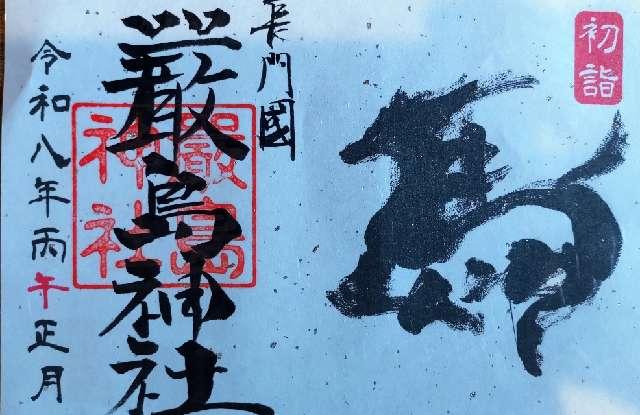 初詣
馬
長門國
厳島神社
厳島神社
令和八年丙午正月